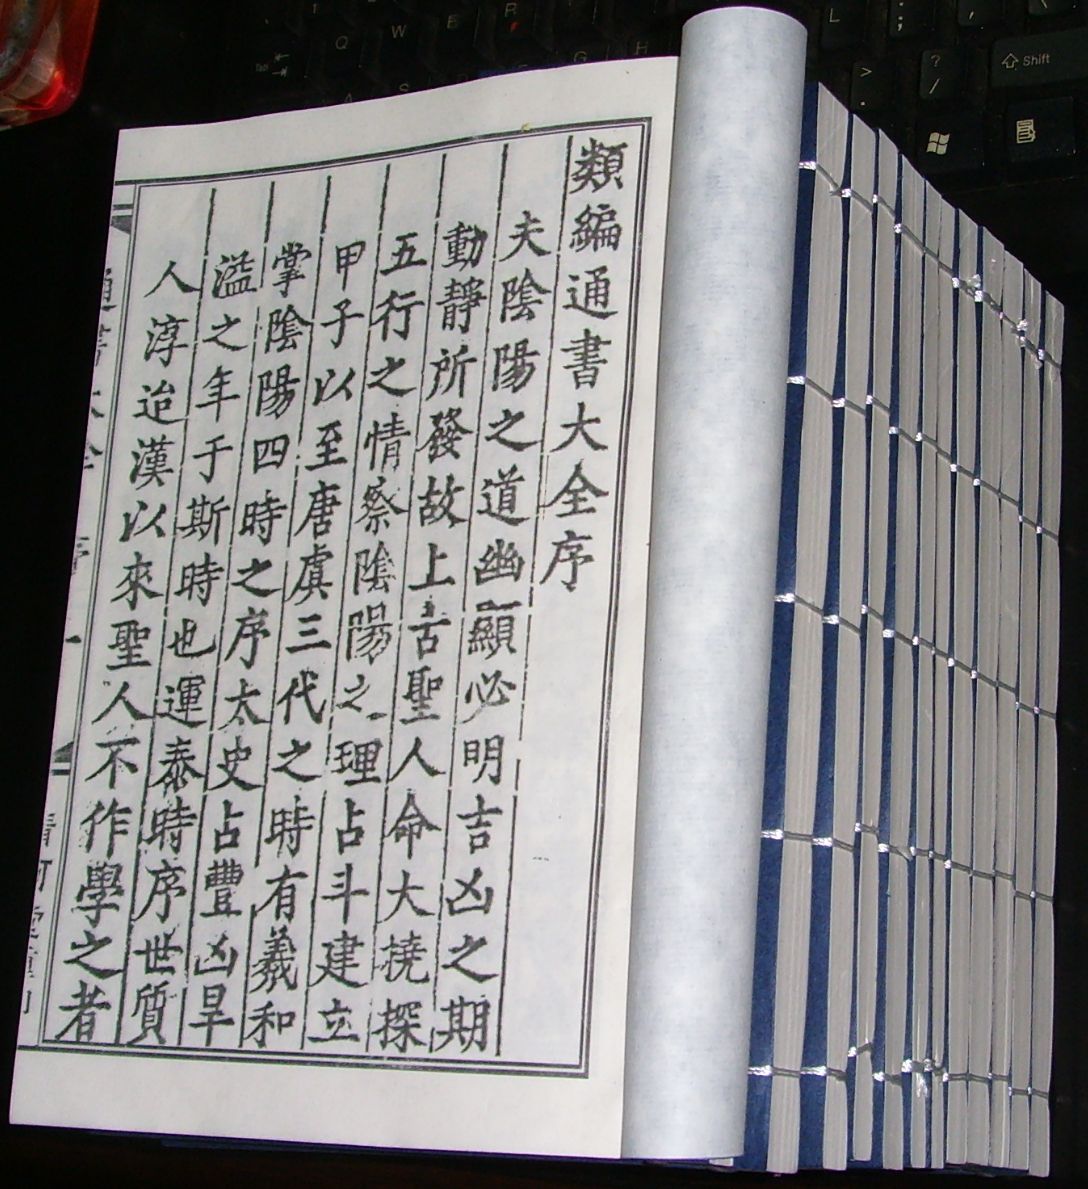 類編通書大全序
夫陰陽之道幽顯必明吉凶之期
動靜所發故上古聖人命大撓探
五行之情察陰陽之理占斗建立
甲子以至唐虞三代之時有羲和
掌陰陽四時之序太史占豐凶旱
溢之年于斯時也運泰時序世質
人淳迨漢以來聖人不作學之者
Q
W
E
R
Tab
A
S
G
H
L
;
>
.
?
/
Shift